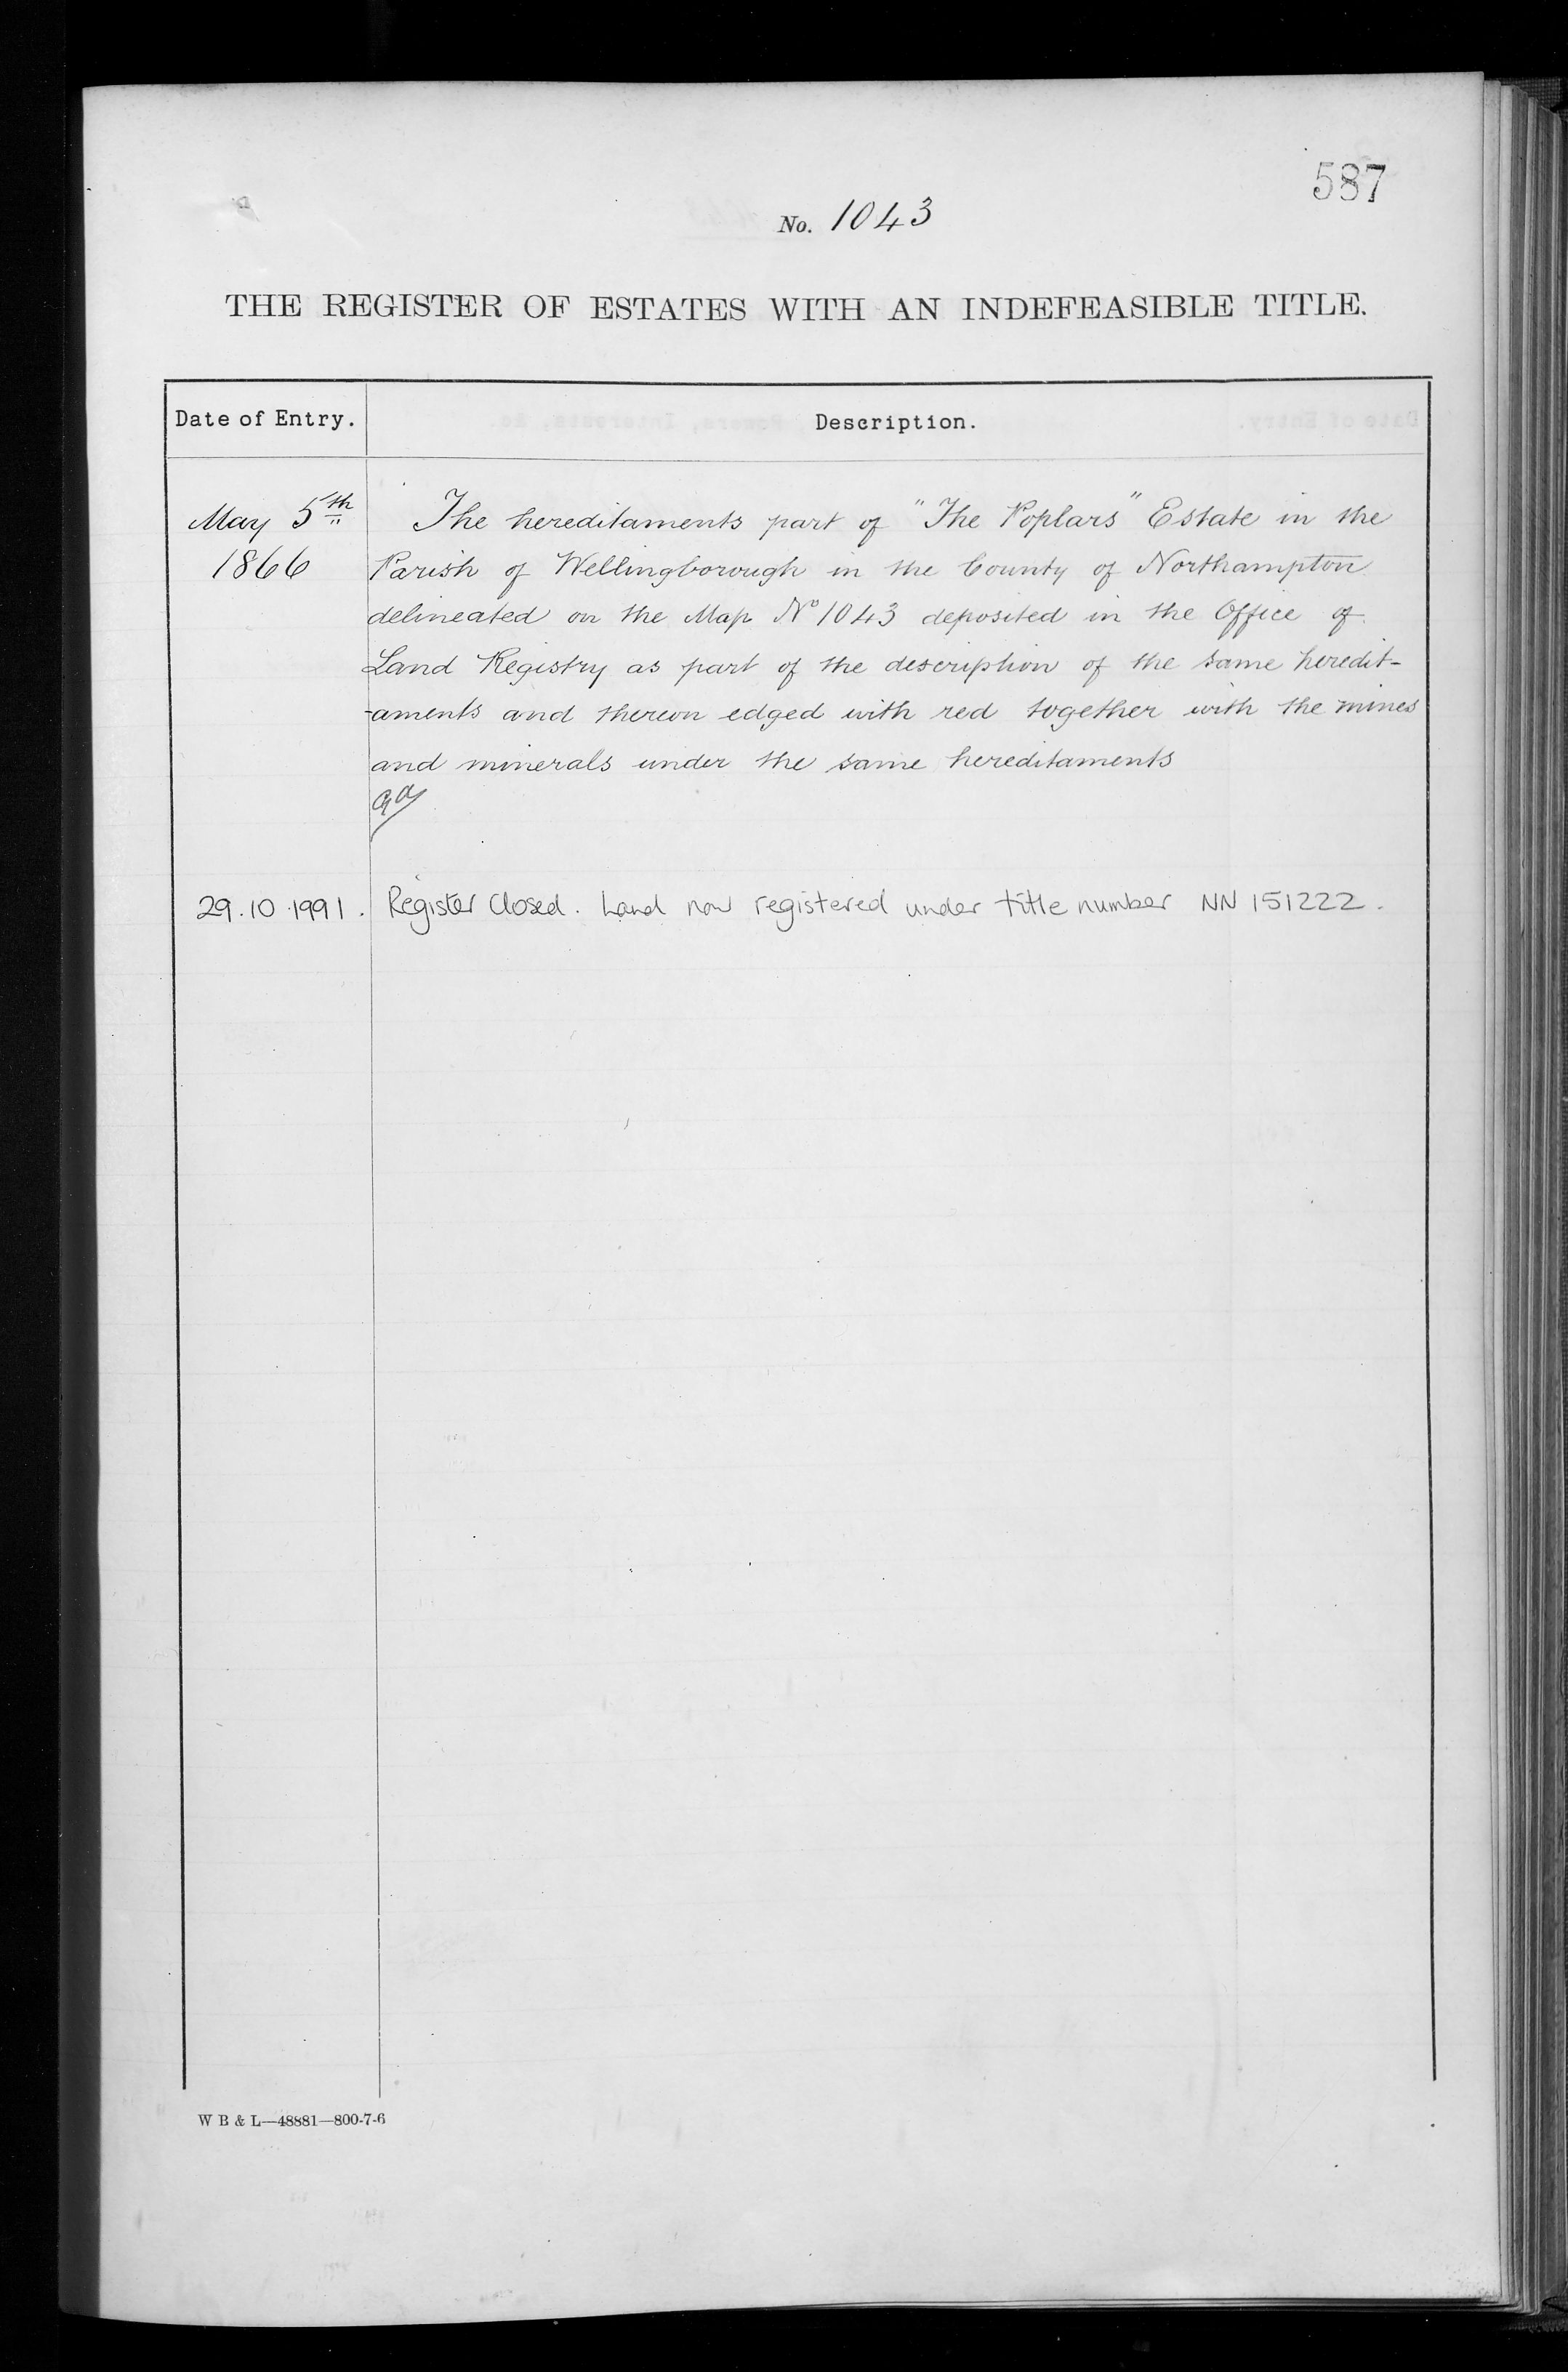 587
No. 1043
THE REGISTER OF ESTATES WITH AN INDEFEASIBLE TITLE.
Date of Entry. Description.
May 5th The hereditaments part of "The Poplars" Estate in the
1866 Parish of Wellingborough in the County of Northampton
delineated on the Map No 1043 deposited in the Office of
Land Registry as part of the description of the same heredit-
-aments and thereon edged with red together with the mines
and minerals under the same hereditaments
29.10.1991. Register Closed. Land now registered under title number NN 151222.
W B & L—48881—800-7-6